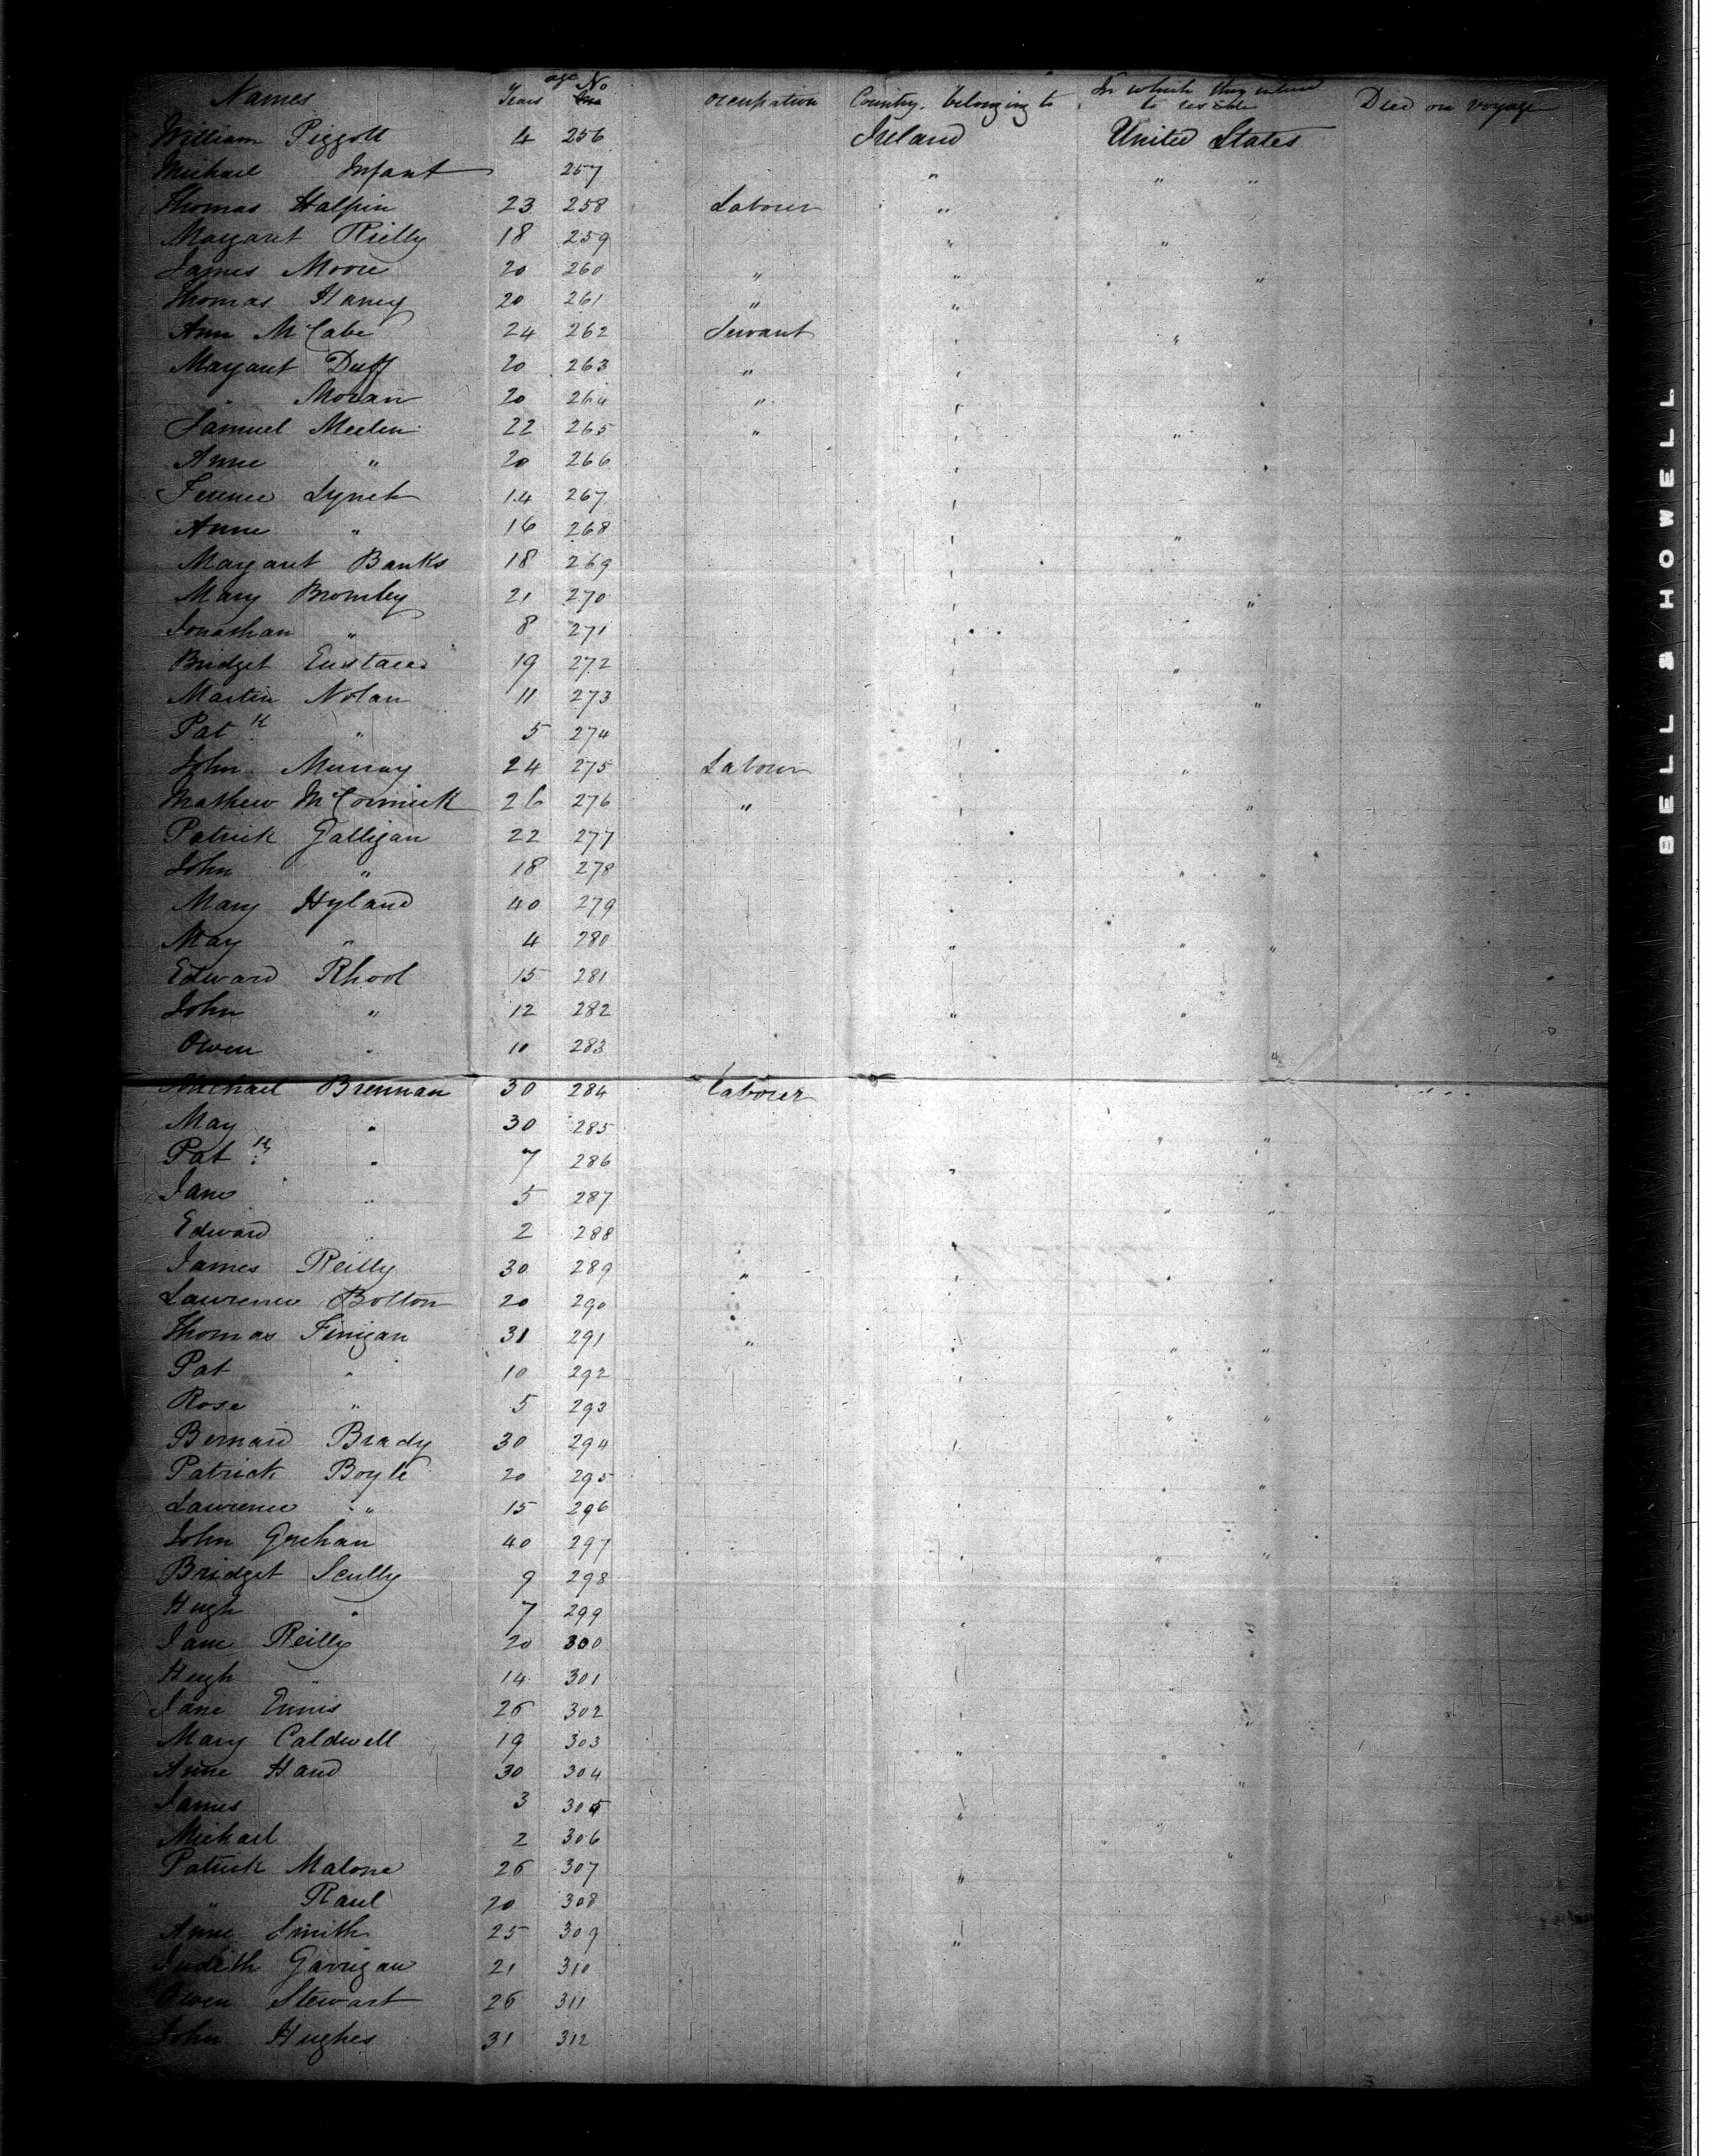 Names Years age No occupation Country belonging to In which they intend to reside Died on Voyage
William Piggott 4 256 Ireland United States
Michael Infant 257 " " "
Thomas Halpin 23 258 Laborer "
Margaret Rielly 18 259 " "
James Moore 20 260 " " "
Thomas Haney 20 261 " "
Ann McCabe 24 262 Servant " "
Margaret Duff 20 263 " "
" Moran 20 264 " "
Samuel 22 265 " " "
Anne " 20 266 "
Terence Lynch 14 267 "
Anne " 16 268 " "
Margaret Banks 18 269 "
Mary Bromley 21 270 " "
Jonathan " 8 271 "
Bridget Eustace 19 272 " "
Martin Nolan 11 273 " "
Patk " 5 274 "
John Murray 24 275 Labourer " "
Mathew McCormick 26 276 " " "
Patrick Galligan 22 277
John " 18 278 " "
Mary Hyland 40 279 "
May " 4 280 " " "
Edward Rhool 15 281
John " 12 282 " "
Owen " 10 283 "
Michael Brennan 30 284 Laborer
May " 30 285 " "
Patk " 7 286 "
Jane " 5 287 " "
Edward " 2 288 "
James Reilly 30 289 " " " "
Lawrence Bolton 20 290
Thomas Finigan 31 291 " " " "
Pat " 10 292 "
Rose " 5 293 " "
Bernard Brady 30 294 "
Patrick Boyle 20 295 "
Lawrence " 15 296 "
John Geehan 40 297 " " "
Bridget Scully 9 298
Hugh " 7 299 " "
Jane Reilly 20 300
Hugh " 14 301 "
Jane Ennis 26 302 " "
Mary Caldwell 19 303 " "
Anne Hand 30 304 "
James 3 305 "
Michael 2 306
Patrick Malone 26 307 "
" Raul 20 308
Anne Smith 25 309 "
Judith Garrigan 21 310
Owen Stewart 26 311
John Hughes 31 312
BELL & HOWELL